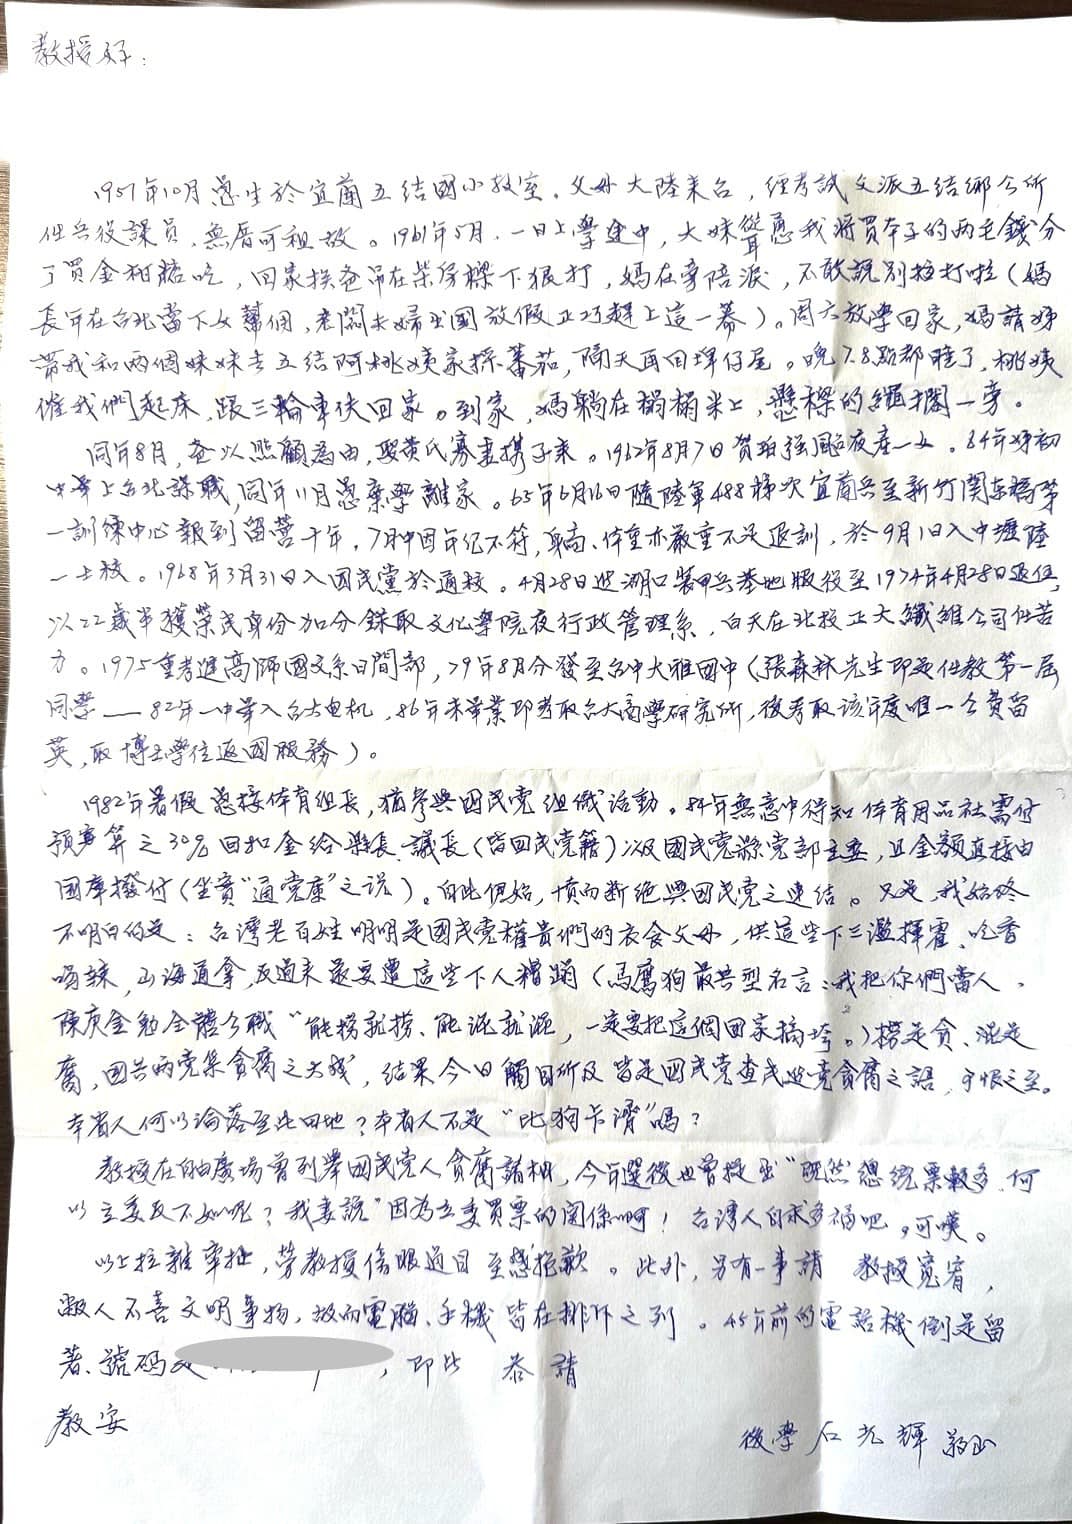 教授好：
1957年10月愚生於宜蘭五結國小教室。父母大陸來台，經考試分派五結鄉公所
任兵役課員，無厝可租故。1961年5月，一日上學途中，大妹慫恿我將買本子的兩毛錢分
了買金柑糖吃，回家挨爸吊在柴房樑下狠打，媽在旁陪淚，不敢說別拉打啦（媽
長年在台北當下女幫佣，老闆夫婦出國放假正巧趕上這一幕）。周六放學回家，媽請姊
帶我和兩個妹妹去五結阿桃姨家採蕃茄，隔天再回埤仔尾。晚7.8點都睡了，桃姨
催我們起床，跟三輪車伕回家。到家，媽躺在榻榻米上，懸樑的繩擱一旁。
同年8月，爸以照顧為由，娶黃氏寡妻攜子來。1962年8月7日賀珀強颱夜產一女。64年姊初
中畢上台北謀職，同年11月愚棄學離家。65年6月16日隨陸軍488梯次宜蘭兵至新竹關東橋第
一訓練中心報到留營十年，7月中因年紀不符，身高、体重亦嚴重不足退訓，於9月1日入中壢陸
一士校。1968年3月31日入國民黨於通校。4月28日赴湖口裝甲兵基地服役至1974年4月28日退伍，
以22歲半獲榮民身份加分錄取文化學院夜行政管理系，白天在北投正大纖維公司任苦
力。1975重考進高師國文系日間部，79年8月分發至台中大雅國中（張森林先生即是任教第一屆
同學——82年一中畢入台大电机，86年未畢業即考取台大商學研究所，後考取該年度唯一公費留
英，取博士學位返國服務）。
1982年暑假愚接体育組長，猶參與國民党組織活動。84年無意中得知体育用品社需付
預算之30%回扣金給縣長、議長（皆国民党籍）以及國民党縣党部主委，且金額直接由
國庫撥付（坐實“通党庫”之說）。自此伊始，憤而断絕與國民党之連結。只是，我始終
不明白的是：台湾老百姓明明是國民党權貴們的衣食父母，供這些下三濫揮霍、吃香
喝辣，山海通拿，反過來還要遭這些下人糟蹋（馬鷹狗最典型名言：我把你們當人、
陳庚金勉全體公職“能撈就撈、能混就混，一定要把這個国家搞垮。”）撈是貪、混是
腐，國共兩党集貪腐之大成，結果今日觸目所及皆是國民党查民進党貪腐之語，可恨之至。
本省人何以淪落至此田地？本省人不是“比狗卡濟”嗎？
教授在自由廣場曾列舉國民党人貪腐諸相，今年選後也曾提出“既然總統票較多，何
以立委反不如呢？我妻說“因為立委買票的関係啊！台湾人自求多福吧。可嘆。
以上拉雜牽扯，勞教授傷眼過目至感抱歉。此外，另有一事請 教授寬宥，
敝人不喜文明事物，故而電腦、手機皆在排斥之列。45年前的電話機倒是留
著、號碼是，即此 恭請
教安
後學石光輝